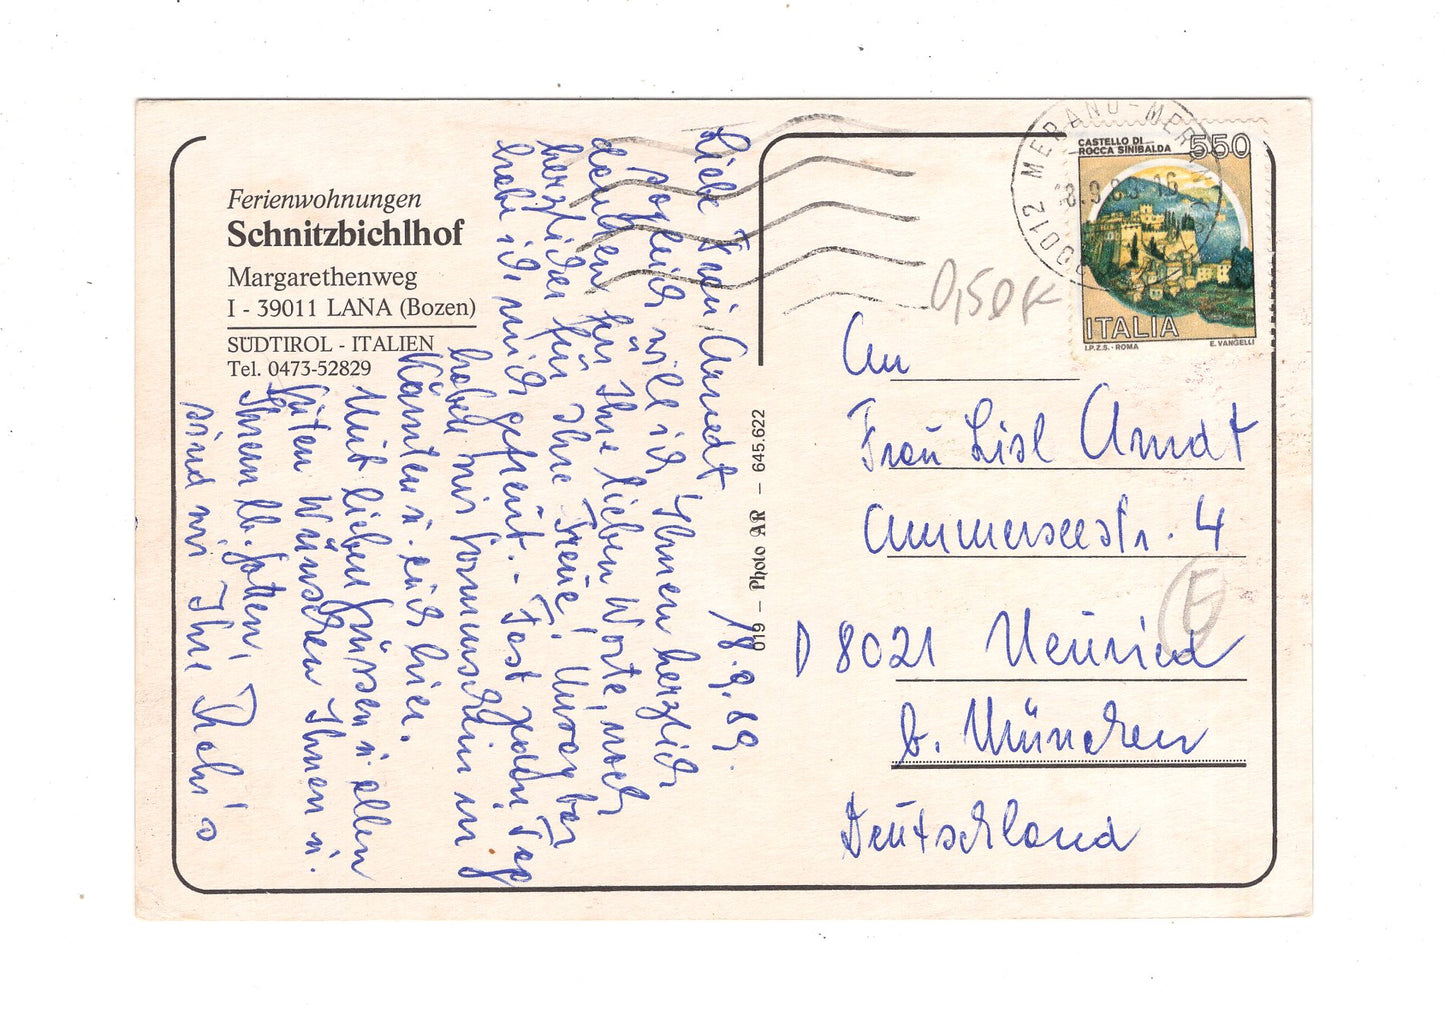 Ferienwohnungen
Schnitzbichlhof
Margarethenweg
I - 39011 LANA (Bozen)
SÜDTIROL - ITALIEN
Tel. 0473-52829
18.9.89.
Liebe Frau Arndt,
sogleich will ich Ihnen herzlich
danken für Ihre lieben Worte, noch
herzlicher für Ihre Treue! Unsagbar
habe ich mich gefreut. - Fast jeden Tag
haben wir Sonnenschein in
Kärnten u. auch hier.
Mit lieben Grüssen u. allen
guten Wünschen Ihnen u.
Ihrem lb. Gatten!
sind wir Ihre
019 – Photo AR – 645.622
39012 MERANO - MERAN
18.9.89 16
CASTELLO DI
ROCCA SINIBALDA
550
ITALIA
I.P.Z.S. - ROMA
E. VANGELLI
0,50 €
An
Frau Lisl Arndt
Ammerseestr. 4
D 8021 Neuried
b. München
Deutschland
E